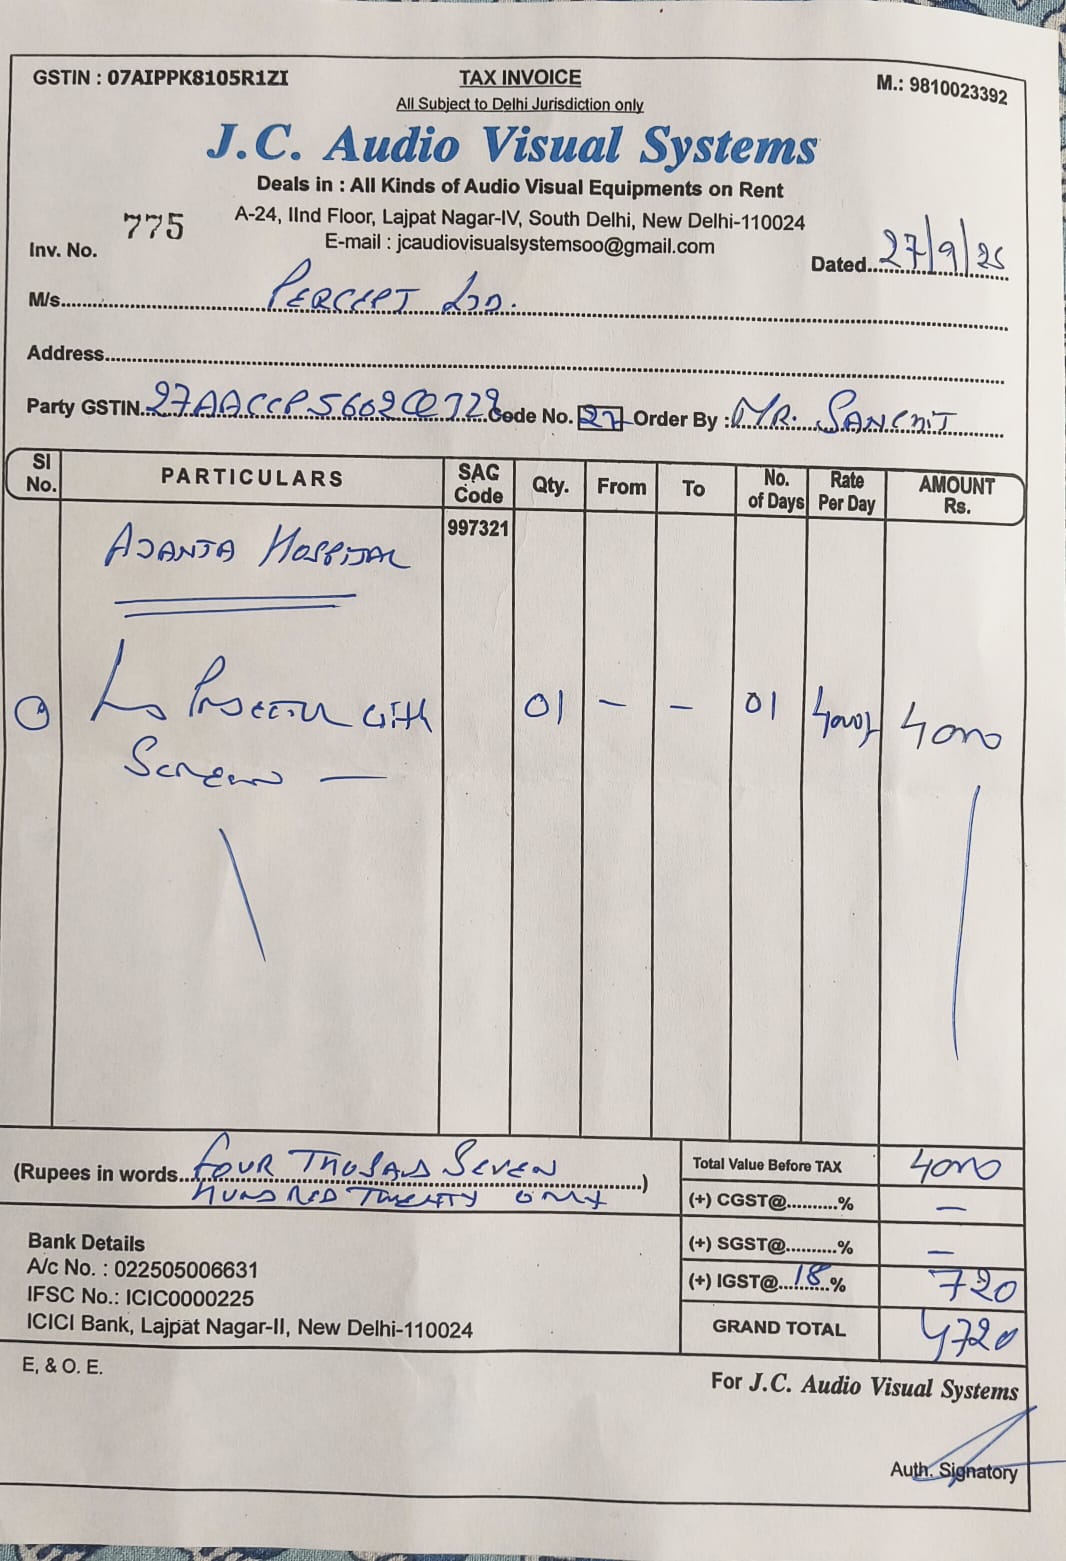 GSTIN : 07AIPPK8105R1ZI
TAX INVOICE
M.: 9810023392
All Subject to Delhi Jurisdiction only
J.C. Audio Visual Systems
Deals in : All Kinds of Audio Visual Equipments on Rent
A-24, IInd Floor, Lajpat Nagar-IV, South Delhi, New Delhi-110024
E-mail : jcaudiovisualsystemsoo@gmail.com
Inv. No. 775
Dated 27/9/25
M/s PERCEPT LTD.
Address
Party GSTIN Code No. 27 Order By : MR. SANCHIT
SI No. PARTICULARS SAC Code Qty. From To No. of Days Rate Per Day AMOUNT Rs.
997321
AJANTA HOSPITAL
with 01 - - 01 4000/ 4000
Screen —
(Rupees in words FOUR THOUSAND SEVEN
HUNDRED TWENTY ONLY )
Total Value Before TAX 4000
(+) CGST@..........% —
(+) SGST@..........% —
(+) IGST@ 18 % 720
GRAND TOTAL 4720
Bank Details
A/c No. : 022505006631
IFSC No.: ICIC0000225
ICICI Bank, Lajpat Nagar-II, New Delhi-110024
E, & O. E.
For J.C. Audio Visual Systems
Auth. Signatory